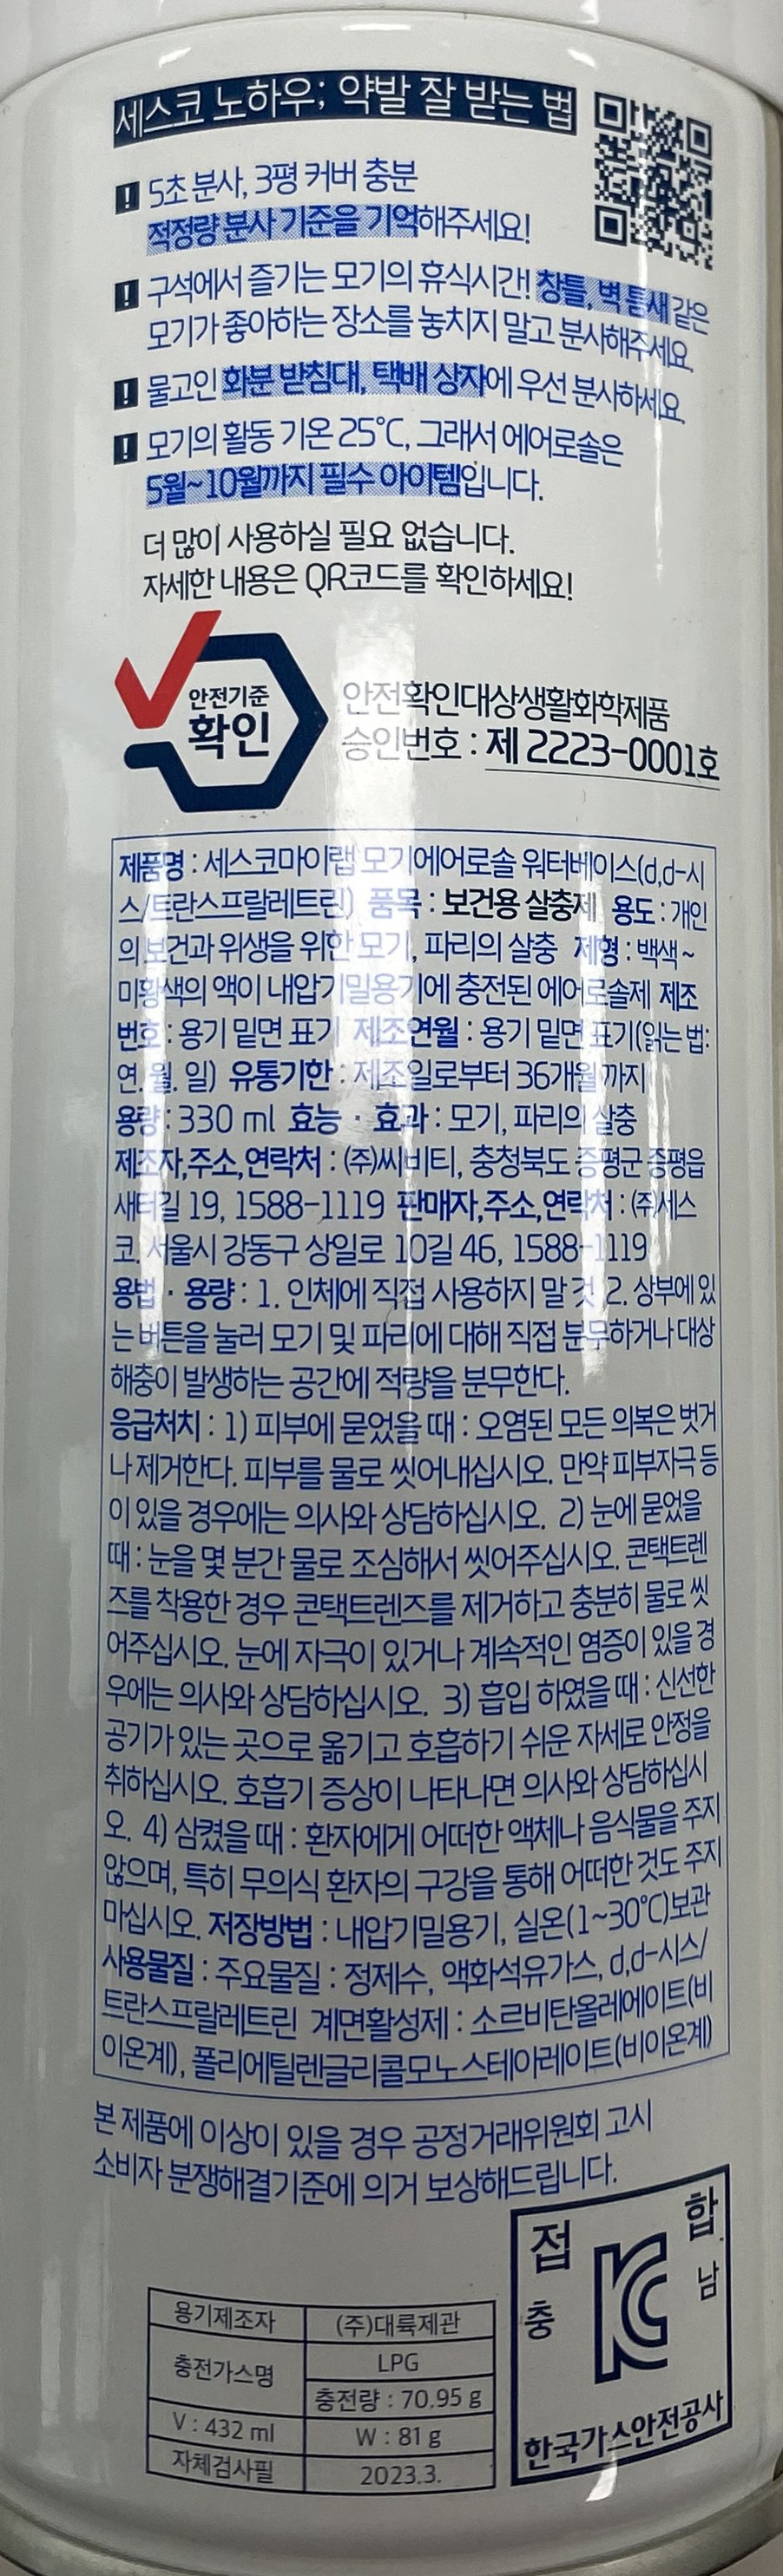 세스코 노하우; 약발 잘 받는 법
! 5초 분사, 3평 커버 충분
적정량 분사 기준을 기억해주세요!
! 구석에서 즐기는 모기의 휴식시간! 창틀, 벽 틈새 같은
모기가 좋아하는 장소를 놓치지 말고 분사해주세요.
! 물고인 화분 받침대, 택배 상자에 우선 분사하세요.
! 모기의 활동 기온 25℃, 그래서 에어로솔은
5월~10월까지 필수 아이템입니다.
더 많이 사용하실 필요 없습니다.
자세한 내용은 QR코드를 확인하세요!
안전기준
확인
안전확인대상생활화학제품
승인번호 : 제 2223-0001호
제품명 : 세스코마이랩 모기에어로솔 워터베이스(d,d-시
스/트란스프랄레트린) 품목 : 보건용 살충제 용도 : 개인
의 보건과 위생을 위한 모기, 파리의 살충 제형 : 백색~
미황색의 액이 내압기밀용기에 충전된 에어로솔제 제조
번호 : 용기 밑면 표기 제조연월 : 용기 밑면 표기(읽는 법:
연. 월. 일) 유통기한 : 제조일로부터 36개월 까지
용량 : 330 ml 효능 · 효과 : 모기, 파리의 살충
제조자,주소,연락처 : (주)씨비티, 충청북도 증평군 증평읍
새터길 19, 1588-1119 판매자,주소,연락처 : (주)세스
코. 서울시 강동구 상일로 10길 46, 1588-1119
용법 · 용량 : 1. 인체에 직접 사용하지 말 것 2. 상부에 있
는 버튼을 눌러 모기 및 파리에 대해 직접 분무하거나 대상
해충이 발생하는 공간에 적량을 분무한다.
응급처치 : 1) 피부에 묻었을 때 : 오염된 모든 의복은 벗거
나 제거한다. 피부를 물로 씻어내십시오. 만약 피부자극 등
이 있을 경우에는 의사와 상담하십시오. 2) 눈에 묻었을
때 : 눈을 몇 분간 물로 조심해서 씻어주십시오. 콘택트렌
즈를 착용한 경우 콘택트렌즈를 제거하고 충분히 물로 씻
어주십시오. 눈에 자극이 있거나 계속적인 염증이 있을 경
우에는 의사와 상담하십시오. 3) 흡입 하였을 때 : 신선한
공기가 있는 곳으로 옮기고 호흡하기 쉬운 자세로 안정을
취하십시오. 호흡기 증상이 나타나면 의사와 상담하십시
오. 4) 삼켰을 때 : 환자에게 어떠한 액체나 음식물을 주지
않으며, 특히 무의식 환자의 구강을 통해 어떠한 것도 주지
마십시오. 저장방법 : 내압기밀용기, 실온(1~30℃)보관
사용물질 : 주요물질 : 정제수, 액화석유가스, d,d-시스/
트란스프랄레트린 계면활성제 : 소르비탄올레에이트(비
이온계), 폴리에틸렌글리콜모노스테아레이트(비이온계)
본 제품에 이상이 있을 경우 공정거래위원회 고시
소비자 분쟁해결기준에 의거 보상해드립니다.
용기제조자 (주)대륙제관
충전가스명 LPG
충전량 : 70.95 g
V : 432 ml W : 81 g
자체검사필 2023.3.
접 합
충 남
한국가스안전공사